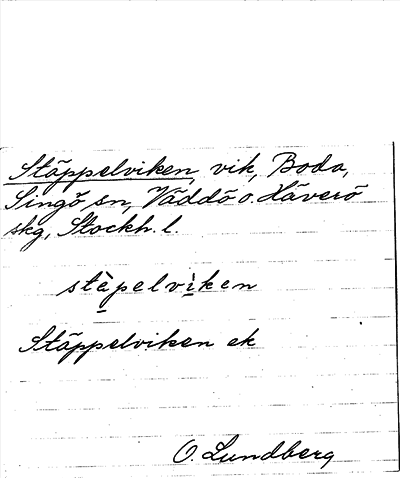 Stäppelviken, vik, Boda,
Singö sn, Väddö o. Häverö
skg, Stockh. l.
stàpelvìken
Stäppelviken ek
O. Lundberg